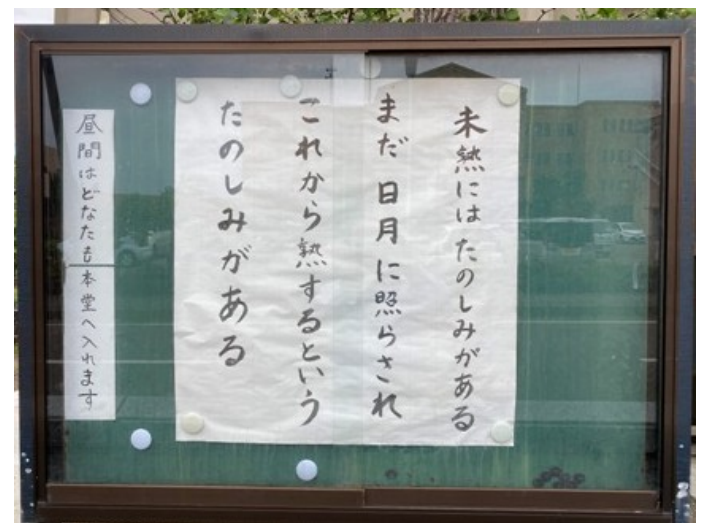 未熟にはたのしみがある
まだ日月に照らされ
これから熟するという
たのしみがある
昼間はどなたも本堂へ入れます